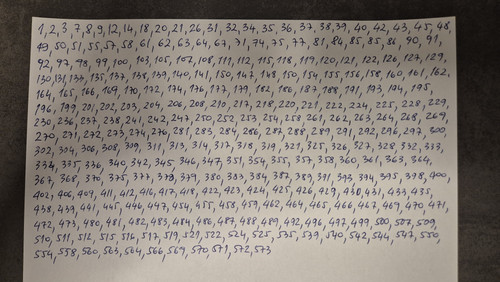 1, 2, 3, 7, 8, 9, 12, 14, 18, 20, 21, 26, 31, 32, 34, 35, 36, 37, 38, 39, 40, 42, 43, 45, 48,
49, 50, 51, 55, 57, 58, 61, 62, 63, 64, 67, 71, 74, 75, 77, 81, 84, 85, 85, 86, 90, 91,
92, 97, 98, 99, 100, 103, 105, 107, 108, 111, 112, 115, 118, 119, 120, 121, 122, 126, 127, 129,
130, 131, 133, 135, 137, 138, 139, 140, 141, 150, 147, 148, 150, 154, 155, 156, 158, 160, 161, 162,
164, 165, 166, 169, 170, 172, 174, 176, 177, 179, 182, 186, 187, 188, 191, 193, 194, 195,
196, 199, 201, 202, 203, 204, 206, 208, 210, 217, 218, 220, 221, 222, 224, 225, 228, 229,
230, 236, 237, 238, 241, 242, 247, 250, 252, 253, 254, 258, 261, 262, 263, 264, 268, 269,
270, 271, 272, 273, 274, 276, 281, 283, 284, 286, 287, 288, 289, 291, 292, 296, 297, 300,
302, 304, 306, 308, 309, 311, 313, 314, 317, 318, 319, 321, 325, 326, 327, 328, 332, 333,
334, 335, 336, 340, 342, 345, 346, 347, 351, 354, 355, 357, 358, 360, 361, 363, 364,
367, 368, 370, 375, 377, 379, 379, 380, 383, 384, 387, 389, 391, 393, 394, 395, 398, 400,
402, 406, 409, 411, 412, 416, 417, 418, 422, 423, 424, 425, 426, 429, 430, 431, 433, 435,
438, 439, 441, 445, 446, 447, 454, 455, 458, 459, 462, 464, 465, 466, 467, 469, 470, 471,
472, 473, 480, 481, 482, 483, 484, 486, 487, 488, 489, 492, 496, 497, 499, 500, 507, 509,
510, 511, 512, 515, 516, 517, 519, 521, 522, 524, 525, 535, 539, 540, 542, 544, 547, 550,
554, 558, 560, 563, 564, 566, 569, 570, 571, 572, 573